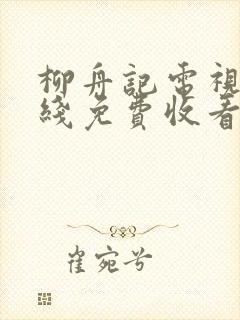 柳舟記電視
綫免費收看
崔宛兮